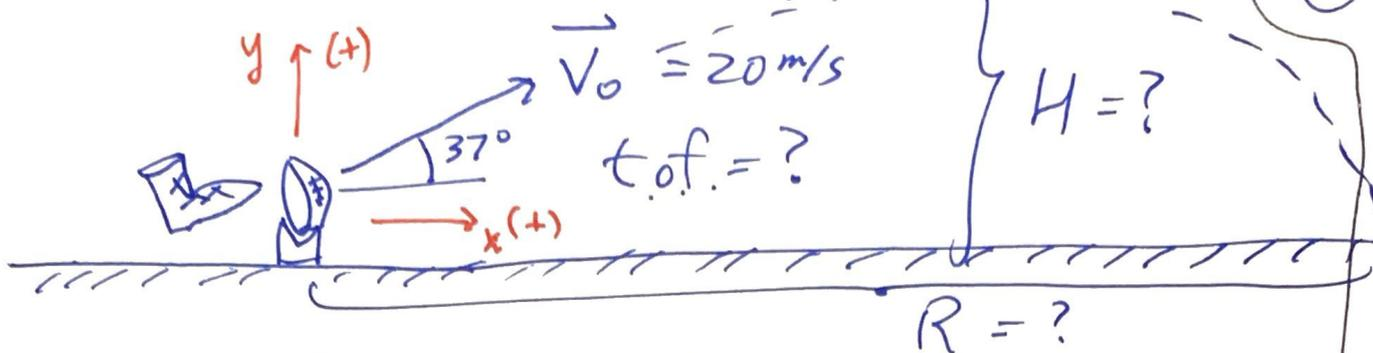 y (+)
V₀ = 20 m/s
H = ?
37°
t.o.f. = ?
x (+)
R = ?